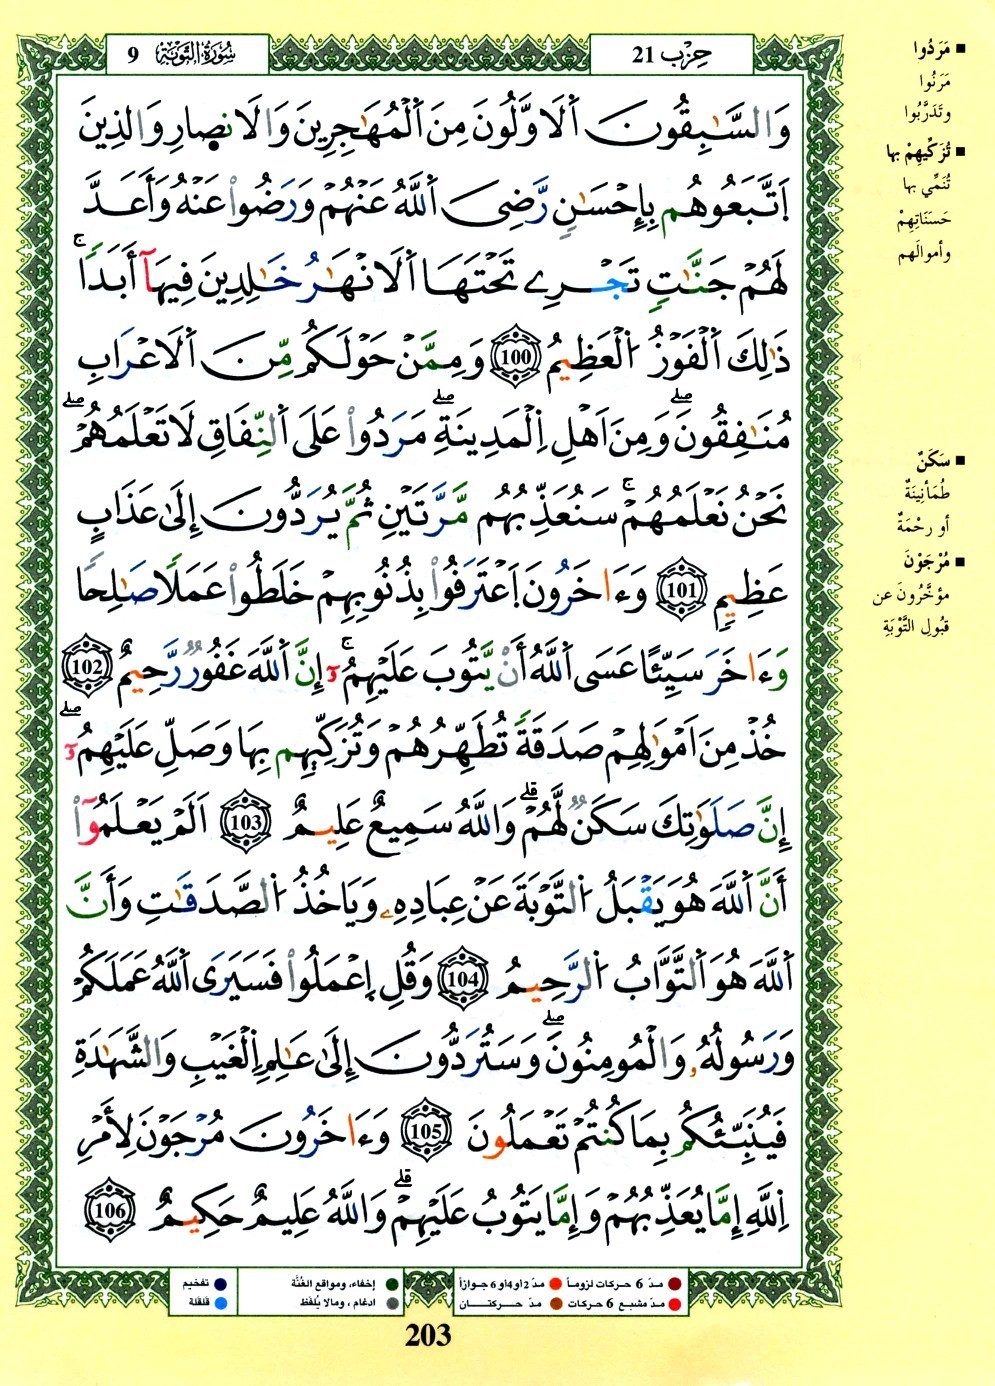 سُورَةُ التَّوْبَة 9
حِزْب 21
وَالسَّٰبِقُونَ اَ۬لَاوَّلُونَ مِنَ اَ۬لْمُهَٰجِرِينَ وَالَانصِارِ وَالذِينَ
اَ۪تَّبَعُوهُم بِإِحْسَٰنٖ رَّضِيَ اَ۬للَّهُ عَنْهُمْ وَرَضُواْ عَنْهُ وَأَعَدَّ
لَهُمْ جَنَّٰتٖ تَجْرِے تَحْتَهَا اَ۬لَانْهَٰرُ خَٰلِدِينَ فِيهَآ أَبَداٗۖ
ذَٰلِكَ اَ۬لْفَوْزُ اُ۬لْعَظِيمُ 100 وَمِمَّنْ حَوْلَكُم مِّنَ اَ۬لَاعْرَابِ
مُنَٰفِقُونَۖ وَمِنَ اَهْلِ اِ۬لْمَدِينَةِۖ مَرَدُواْ عَلَى اَ۬لنِّفَاقِ لَا تَعْلَمُهُمْۖ
نَحْنُ نَعْلَمُهُمْۚ سَنُعَذِّبُهُم مَّرَّتَيْنِ ثُمَّ يُرَدُّونَ إِلَىٰ عَذَابٍ
عَظِيمٖ 101 وَءَاخَرُونَ اَ۪عْتَرَفُواْ بِذُنُوبِهِمْ خَلَطُواْ عَمَلاٗ صَٰلِحاٗ
وَءَاخَرَ سَيِّئاً عَسَى اَ۬للَّهُ أَنْ يَّتُوبَ عَلَيْهِمُۥٓۚ إِنَّ اَ۬للَّهَ غَفُورٞ رَّحِيمٌ 102
خُذْ مِنَ اَمْوَٰلِهِمْ صَدَقَةٗ تُطَهِّرُهُمْ وَتُزَكِّيهِم بِهَا وَصَلِّ عَلَيْهِمُۥٓۖ
إِنَّ صَلَوَٰتِكَ سَكَنٞ لَّهُمْۗ وَاللَّهُ سَمِيعٌ عَلِيمٌ 103 اَلَمْ يَعْلَمُوٓاْ
أَنَّ اَ۬للَّهَ هُوَ يَقْبَلُ اُ۬لتَّوْبَةَ عَنْ عِبَادِهِۦ وَيَاخُذُ اُ۬لصَّدَقَٰتِ وَأَنَّ
اَ۬للَّهَ هُوَ اَ۬لتَّوَّابُ اُ۬لرَّحِيمُ 104 وَقُلِ اِ۪عْمَلُواْ فَسَيَرَى اَ۬للَّهُ عَمَلَكُمْ
وَرَسُولُهُۥ وَالْمُومِنُونَۖ وَسَتُرَدُّونَ إِلَىٰ عَٰلِمِ اِ۬لْغَيْبِ وَالشَّهَٰدَةِ
فَيُنَبِّئُكُم بِمَا كُنتُمْ تَعْمَلُونَ 105 وَءَاخَرُونَ مُرْجَوْنَ لِأَمْرِ
اِ۬للَّهِ إِمَّا يُعَذِّبُهُمْ وَإِمَّا يَتُوبُ عَلَيْهِمْۗ وَاللَّهُ عَلِيمٌ حَكِيمٌ 106
■ مَرَدُوا
مَرَنُوا
وتَدَرَّبُوا
■ تُزَكِّيهِمْ بها
تُنَمِّي بها
حَسَنَاتِهِمْ
وأموالَهم
■ سَكَنٌ
طُمَأْنِينَةٌ
أو رحْمَةٌ
■ مُرْجَوْنَ
مؤخَّرُونَ عن
قبُولِ التَّوْبَةِ
مدّ 6 حركات لزوماً
مدّ 2 أو 4 أو 6 جوازاً
إخفاء، ومواقع الغُنَّة
تفخيم
مدّ مشبع 6 حركات
مدّ حركتــان
ادغام ، ومالا يُلفَظ
قلقلة
203